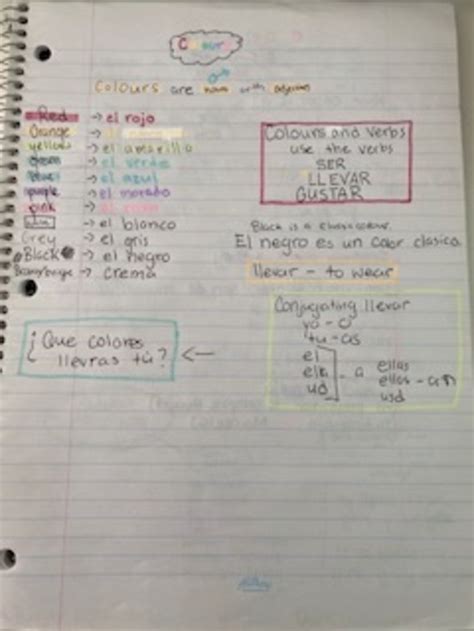 Colours
Colours are nouns and/or adjectives
Red → el rojo
Orange →
yellow → el amarillo
green → el verde
blue → el azul
purple → el morado
pink → el rosa
→ el blanco
Grey → el gris
Black → el negro
→ crema
Colours and Verbs
use the verbs
SER
LLEVAR
GUSTAR
Black is a classic colour.
El negro es un color clasico.
llevar - to wear
Conjugating llevar
yo - o
tu - as
el
ella
ud
- a
ellas
ellos - an
usd
¿Que colores
llevras tú? ←